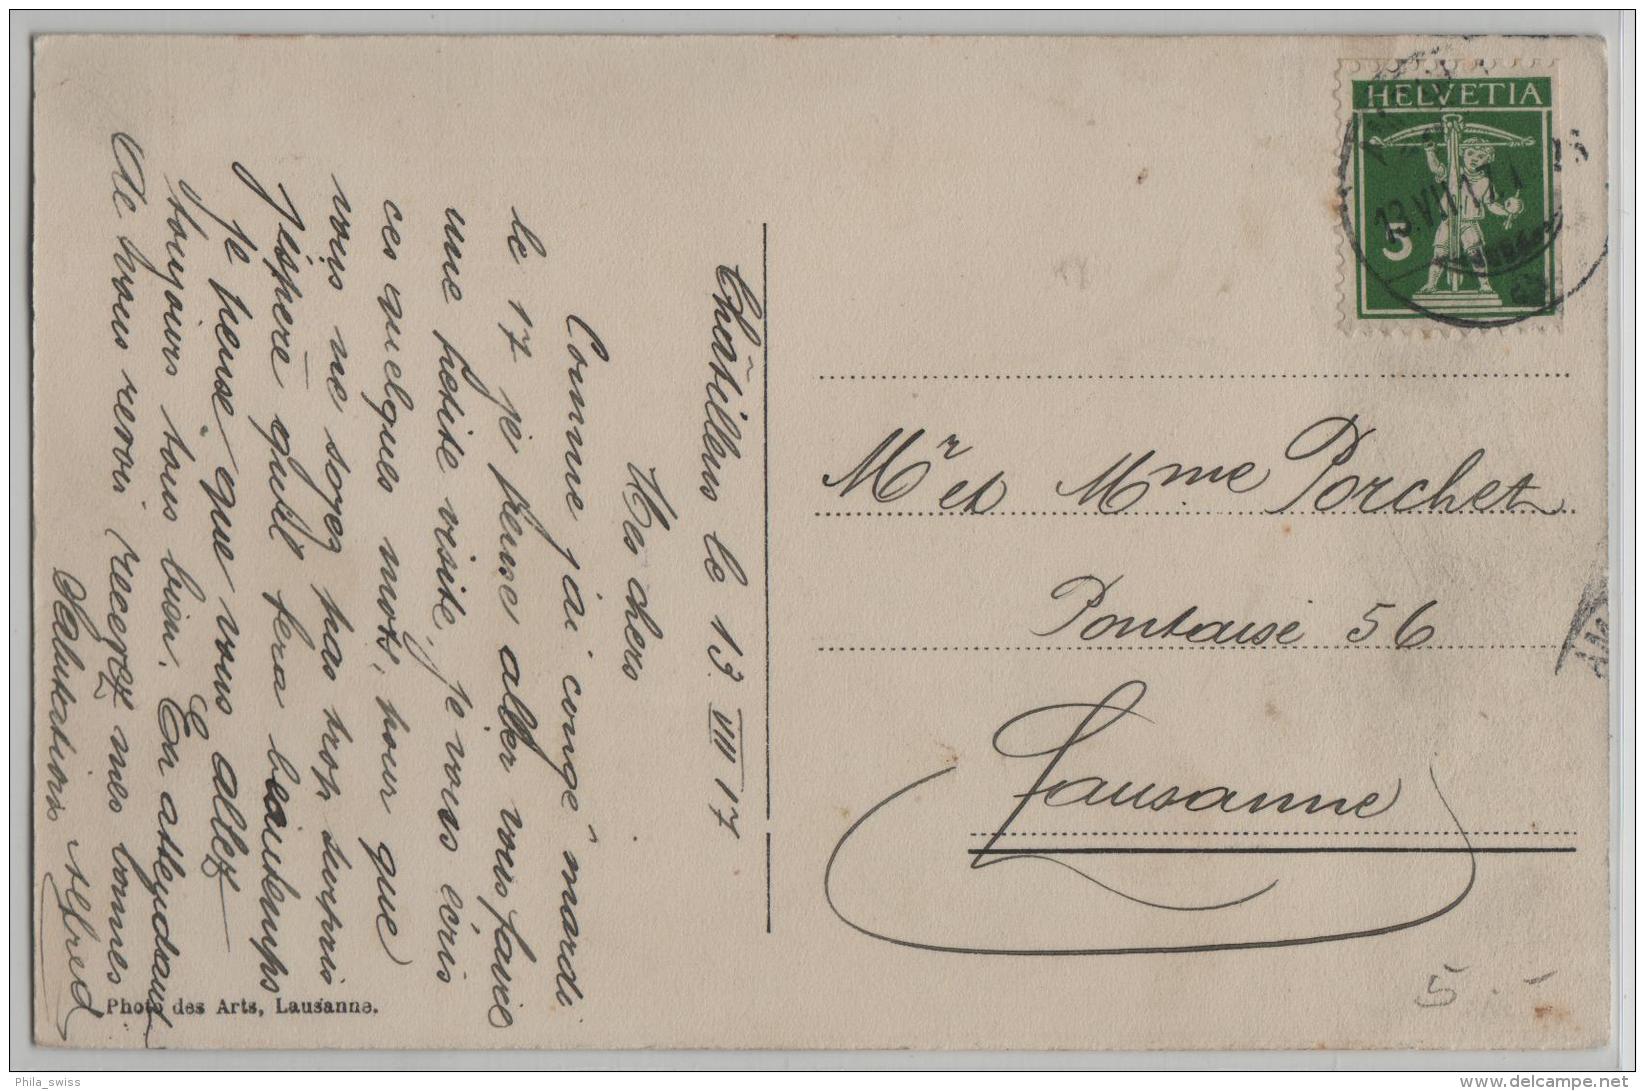 Châtillens le 13. VII 17
Mes chers
Comme j'ai congé mardi
le 17 je pense aller vous faire
une petite visite, je vous écris
ces quelques mots, pour que
vous ne soyez pas trop surpris
j'espère quil fera beautemps
Je pense que vous allez
toujours tous bien. En attendant
de vous revoir recevez mes bonnes
Salutations Alfred
Photo des Arts, Lausanne.
HELVETIA
5
13.VII.17.
Mr et Mme Porchet
Pontaise 56
Lausanne
5.-
Phila_swiss
www.delcampe.net